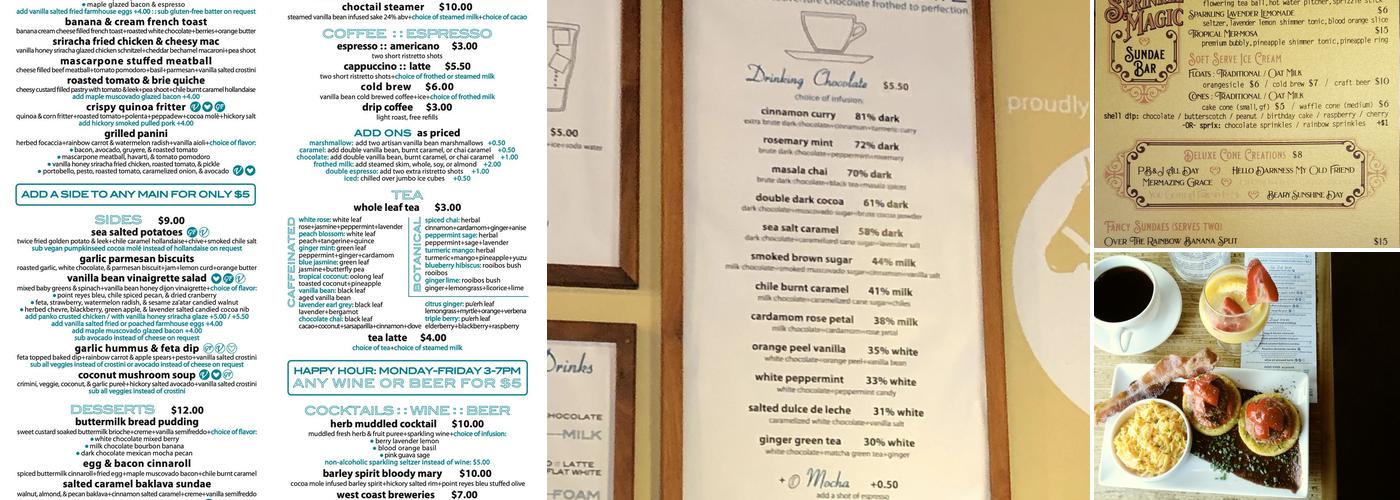 • maple glazed bacon & espresso
add vanilla salted fried farmhouse eggs +4.00 : : sub gluten-free batter on request
banana & cream french toast
banana creme cheese filled french toast+roasted white chocolate+berries+orange butter
sriracha fried chicken & cheesy mac
vanilla honey sriracha glazed chicken schnitzel+cheddar bechamel macaroni+pea shoot
mascarpone stuffed meatball
cheese filled beef meatball+tomato pomodoro+basil+parmesan+vanilla salted crostini
roasted tomato & brie quiche
cheesy custard filled pastry with tomato & leek+pea shoot+chile burnt caramel hollandaise
add maple muscovado glazed bacon +4.00
crispy quinoa fritter
quinoa & corn fritter+roasted tomato+polenta+pepper+cocoa molé+hickory salt
add hickory smoked pulled pork +4.00
grilled panini
herbed foccacia+rainbow carrot & watermelon radish+vanilla aioli+choice of flavor:
• bacon, avocado, gruyere, & roasted tomato
• mascarpone meatball, havarti, & tomato pomodoro
• vanilla honey sriracha fried chicken, roasted tomato, & pickle
• portobello, pesto, roasted tomato, caramelized onion, & avocado
ADD A SIDE TO ANY MAIN FOR ONLY $5
SIDES $9.00
sea salted potatoes
twice fried golden potato & leek+chile caramel hollandaise+chive+smoked chile salt
sub vegan pumpkinseed cocoa molé instead of hollandaise on request
garlic parmesan biscuits
roasted garlic, white chocolate, & parmesan biscuit+jam+lemon curd+orange butter
vanilla bean vinaigrette salad
mixed baby greens & spinach+vanilla bean honey dijon vinaigrette+choice of flavor:
• point reyes bleu, chile spiced pecan, & dried cranberry
• feta, strawberry, watermelon radish, & sesame za'atar candied walnut
• herbed chevre, blackberry, green apple, & lavender salted candied cocoa nib
add panko crusted chicken / with vanilla honey sriracha glaze +5.00 / +5.50
add vanilla salted fried or poached farmhouse eggs +4.00
add maple muscovado glazed bacon +4.00
sub avocado instead of cheese on request
garlic hummus & feta dip
feta topped baked dip+rainbow carrot & apple spears+pesto+vanilla salted crostini
sub all veggies instead of crostini or avocado instead of cheese on request
coconut mushroom soup
crimini, veggie, coconut, & garlic pureé+hickory salted avocado+vanilla salted crostini
sub all veggies instead of crostini
DESSERTS $12.00
buttermilk bread pudding
sweet custard soaked buttermilk brioche+creme+vanilla semifreddo+choice of flavor:
• white chocolate mixed berry
• milk chocolate bourbon banana
• dark chocolate mexican mocha pecan
egg & bacon cinnaroll
spiced buttermilk cinnaroll+fried egg+maple muscovado bacon+chile burnt caramel
salted caramel baklava sundae
walnut, almond, & pecan baklava+cinnamon salted caramel+creme+vanilla semifreddo
choctail steamer $10.00
steamed vanilla bean infused sake 24% abv+choice of steamed milk+choice of cacao
COFFEE :: ESPRESSO
espresso :: americano $3.00
two short ristretto shots
cappuccino :: latte $5.50
two short ristretto shots+choice of frothed or steamed milk
cold brew $6.00
vanilla bean cold brewed coffee+ice+choice of frothed milk
drip coffee $3.00
light roast, free refills
ADD ONS as priced
marshmallow: add two artisan vanilla bean marshmallows +0.50
caramel: add double vanilla bean, burnt caramel, or chai caramel +0.50
chocolate: add double vanilla bean, burnt caramel, or chai caramel +1.00
frothed milk: add steamed skim, whole, soy, or almond +2.00
double espresso: add two extra ristretto shots +1.00
iced: chilled over jumbo ice cubes +0.50
TEA
whole leaf tea $3.00
CAFFEINATED
white rose: white leaf
rose+jasmine+peppermint+lavender
peach blossom: white leaf
peach+tangerine+quince
ginger mint: green leaf
peppermint+ginger+cardamom
blue jasmine: green leaf
jasmine+butterfly pea
tropical coconut: oolong leaf
toasted coconut+pineapple
vanilla bean: black leaf
aged vanilla bean
lavender earl grey: black leaf
lavender+bergamot
chocolate chai: black leaf
cacao+coconut+sarsaparilla+cinnamon+clove
BOTANICAL
spiced chai: herbal
cinnamon+cardamom+ginger+anise
peppermint sage: herbal
peppermint+sage+lavender
turmeric mango: herbal
turmeric+mango+pineapple+yuzu
blueberry hibiscus: rooibos bush
rooibos
ginger lime: rooibos bush
ginger+lemongrass+licorice+lime
citrus ginger: pu'erh leaf
lemongrass+myrtle+orange+verbena
triple berry: pu'erh leaf
elderberry+blackberry+raspberry
tea latte $4.00
choice of tea+choice of steamed milk
HAPPY HOUR: MONDAY-FRIDAY 3-7PM
ANY WINE OR BEER FOR $5
COCKTAILS :: WINE :: BEER
herb muddled cocktail $10.00
muddled fresh herb & fruit puree+sparkling wine+choice of infusion:
• berry lavender lemon
• blood orange basil
• pink guava sage
non-alcoholic sparkling seltzer instead of wine: $5.00
barley spirit bloody mary $10.00
cocoa mole infused barley spirit+hickory salted rim+point reyes bleu stuffed olive
west coast breweries $7.00
$5.00
ice+soda water
Drinks
CHOCOLATE
MILK
LATTE
FLAT WHITE
FOAM
chocolate frothed to perfection
Drinking Chocolate $5.50
choice of infusion
cinnamon curry 81% dark
extra brute dark chocolate+cinnamon+turmeric curry
rosemary mint 72% dark
brute dark chocolate+peppermint+rosemary
masala chai 70% dark
dark chocolate+black tea+masala spices
double dark cocoa 61% dark
dark chocolate+muscovado sugar+brute cocoa powder
sea salt caramel 58% dark
dark chocolate+caramelized cane sugar+lavender salt
smoked brown sugar 44% milk
milk chocolate+smoked muscovado sugar+cinnamon+vanilla salt
chile burnt caramel 41% milk
milk chocolate+caramelized cane sugar+chiles
cardamom rose petal 38% milk
milk chocolate+cardamom+rose petal
orange peel vanilla 35% white
white chocolate+orange peel+vanilla bean
white peppermint 33% white
white chocolate+peppermint candy
salted dulce de leche 31% white
caramelized white chocolate+vanilla salt
ginger green tea 30% white
white chocolate+matcha green tea+ginger
+ Mocha +0.50
add a shot of espresso
proudly
SPRINKLE MAGIC
SUNDAE BAR
flowering tea ball, hot water pitcher, sprizzle stick
SPARKLING LAVENDER LEMONADE $6
seltzer, lavender lemon shimmer tonic, blood orange slice
TROPICAL MERMOSA $15
premium bubbly, pineapple shimmer tonic, pineapple ring
SOFT SERVE ICE CREAM
FLOATS : TRADITIONAL / OAT MILK
orangesicle $6 / cold brew $7 / craft beer $10
CONES : TRADITIONAL / OAT MILK
cake cone (small, gf) $5 / waffle cone (medium) $6
shell dip: chocolate / butterscotch / peanut / birthday cake / raspberry / cherry
-OR- sprix: chocolate sprinkles / rainbow sprinkles +$1
DELUXE CONE CREATIONS $8
P.B.&J. ALL DAY HELLO DARKNESS MY OLD FRIEND
MERMAZING GRACE
BEARY SUNSHINE DAY
FANCY SUNDAES (SERVES TWO)
OVER THE RAINBOW BANANA SPLIT $15